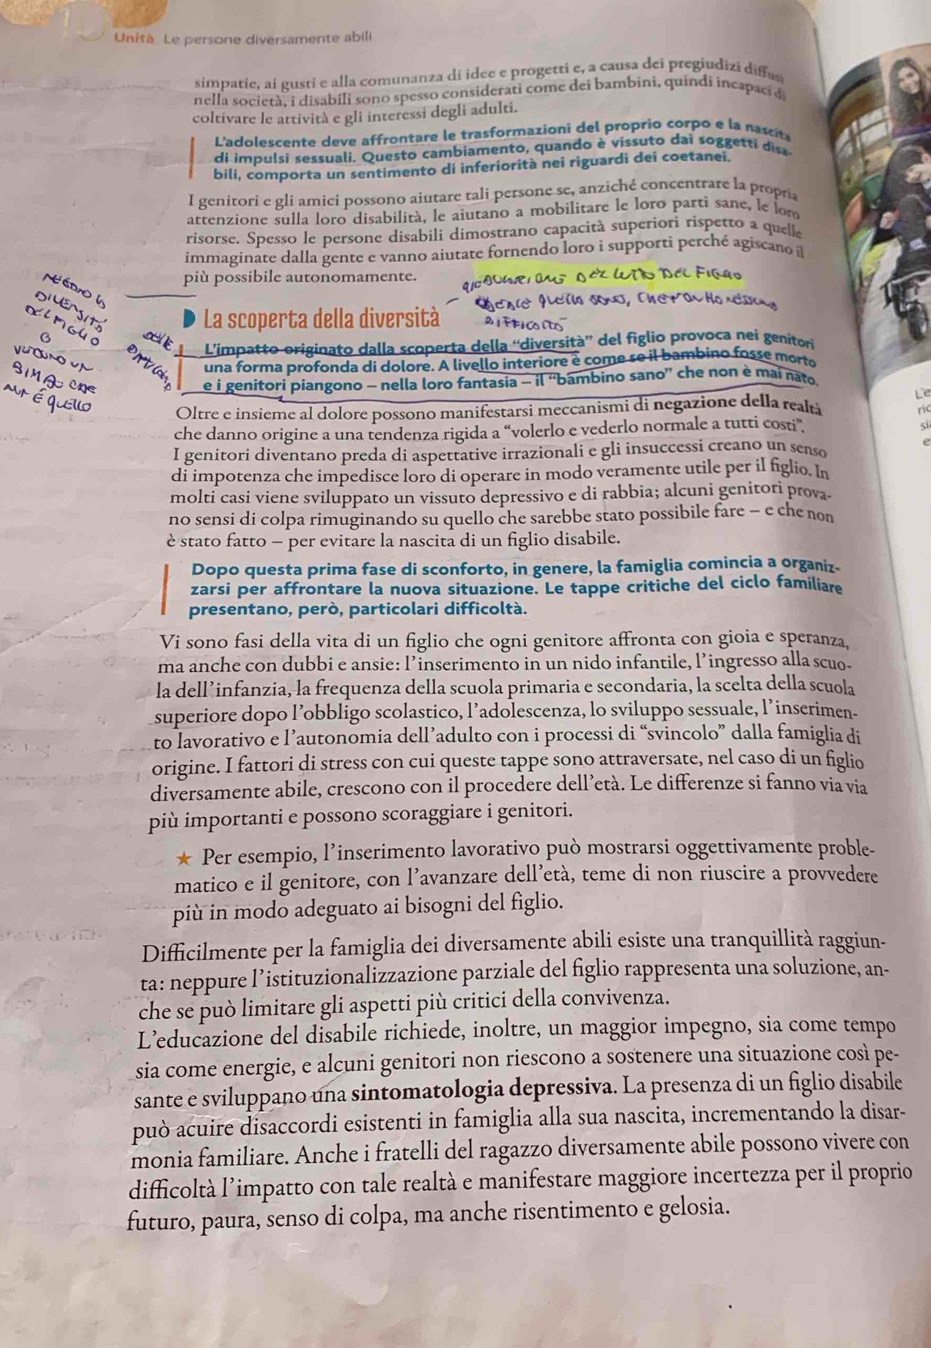 Unità Le persone diversamente abili
simpatie, ai gusti e alla comunanza di idee e progetti e, a causa dei pregiudizi diffusi
nella società, i disabili sono spesso considerati come dei bambini, quindi incapaci di
coltivare le attività e gli interessi degli adulti.
L'adolescente deve affrontare le trasformazioni del proprio corpo e la nascita
di impulsi sessuali. Questo cambiamento, quando è vissuto dai soggetti disa-
bili, comporta un sentimento di inferiorità nei riguardi dei coetanei.
I genitori e gli amici possono aiutare tali persone se, anziché concentrare la propria
attenzione sulla loro disabilità, le aiutano a mobilitare le loro parti sane, le loro
risorse. Spesso le persone disabili dimostrano capacità superiori rispetto a quelle
immaginate dalla gente e vanno aiutate fornendo loro i supporti perché agiscano il
più possibile autonomamente.
DEL LUTTO DEL FIGLIO
QUELLO SANO, CHE NON HA NESSUNA
DIFFICOLTÀ
NEGANO LA
DIVERSITÀ
DEL FIGLIO
E
VEDONO UN
BIMBO CHE
NON È QUELLO
La scoperta della diversità
L'impatto originato dalla scoperta della “diversità” del figlio provoca nei genitori
una forma profonda di dolore. A livello interiore è come se il bambino fosse morto
e i genitori piangono – nella loro fantasia – il “bambino sano” che non è mai nato.
Oltre e insieme al dolore possono manifestarsi meccanismi di negazione della realtà
che danno origine a una tendenza rigida a “volerlo e vederlo normale a tutti costi”.
I genitori diventano preda di aspettative irrazionali e gli insuccessi creano un senso
di impotenza che impedisce loro di operare in modo veramente utile per il figlio. In
molti casi viene sviluppato un vissuto depressivo e di rabbia; alcuni genitori prova-
no sensi di colpa rimuginando su quello che sarebbe stato possibile fare – e che non
è stato fatto – per evitare la nascita di un figlio disabile.
Dopo questa prima fase di sconforto, in genere, la famiglia comincia a organiz-
zarsi per affrontare la nuova situazione. Le tappe critiche del ciclo familiare
presentano, però, particolari difficoltà.
Vi sono fasi della vita di un figlio che ogni genitore affronta con gioia e speranza,
ma anche con dubbi e ansie: l’inserimento in un nido infantile, l’ingresso alla scuo-
la dell’infanzia, la frequenza della scuola primaria e secondaria, la scelta della scuola
superiore dopo l’obbligo scolastico, l’adolescenza, lo sviluppo sessuale, l’inserimen-
to lavorativo e l’autonomia dell’adulto con i processi di “svincolo” dalla famiglia di
origine. I fattori di stress con cui queste tappe sono attraversate, nel caso di un figlio
diversamente abile, crescono con il procedere dell’età. Le differenze si fanno via via
più importanti e possono scoraggiare i genitori.
★ Per esempio, l’inserimento lavorativo può mostrarsi oggettivamente proble-
matico e il genitore, con l’avanzare dell’età, teme di non riuscire a provvedere
più in modo adeguato ai bisogni del figlio.
Difficilmente per la famiglia dei diversamente abili esiste una tranquillità raggiun-
ta: neppure l’istituzionalizzazione parziale del figlio rappresenta una soluzione, an-
che se può limitare gli aspetti più critici della convivenza.
L’educazione del disabile richiede, inoltre, un maggior impegno, sia come tempo
sia come energie, e alcuni genitori non riescono a sostenere una situazione così pe-
sante e sviluppano una sintomatologia depressiva. La presenza di un figlio disabile
può acuire disaccordi esistenti in famiglia alla sua nascita, incrementando la disar-
monia familiare. Anche i fratelli del ragazzo diversamente abile possono vivere con
difficoltà l’impatto con tale realtà e manifestare maggiore incertezza per il proprio
futuro, paura, senso di colpa, ma anche risentimento e gelosia.